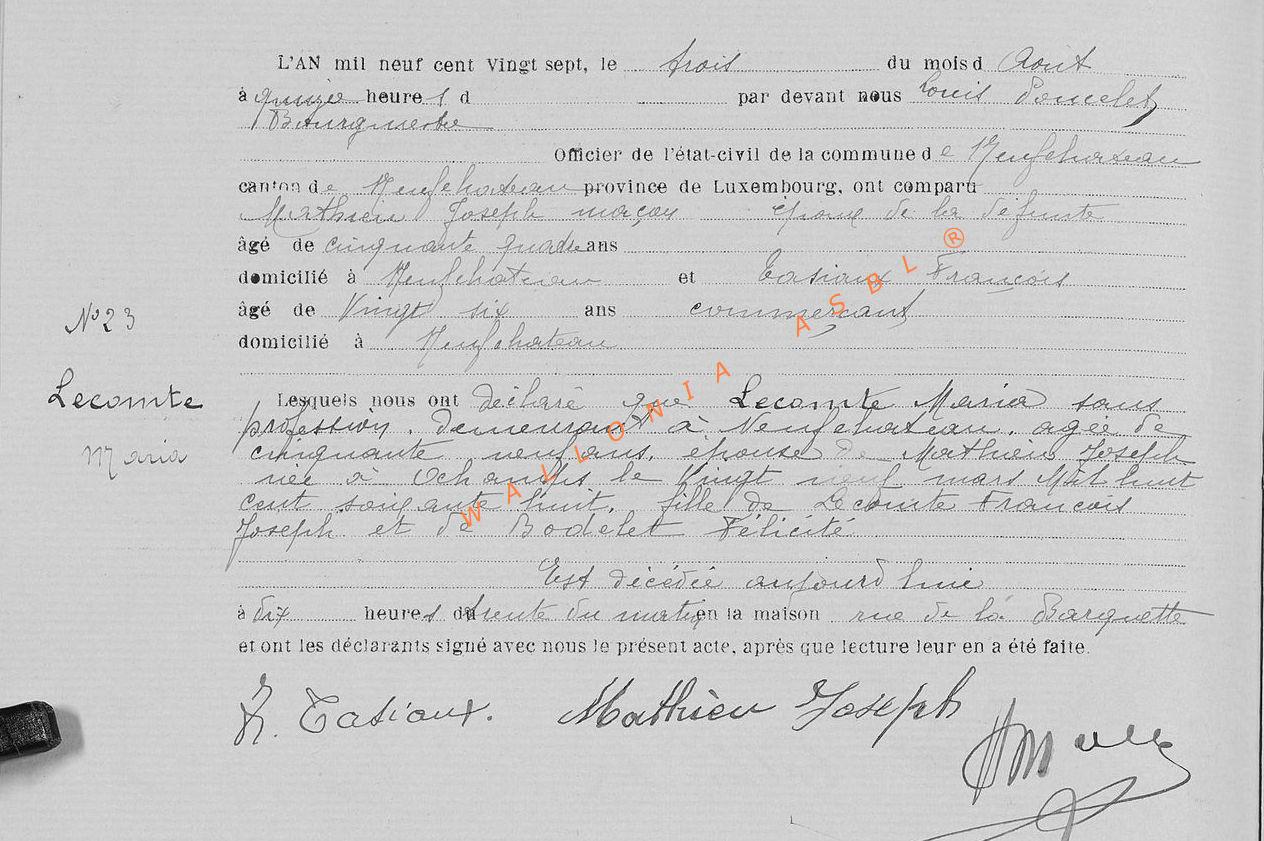 L'AN mil neuf cent Vingt sept, le trois du mois d Août
à quinze heures d par devant nous Louis Poncelet
Bourgmestre
Officier de l'état-civil de la commune de Neufchateau
canton de Neufchateau province de Luxembourg, ont comparu
Mathieu Joseph maçon époux de la défunte
âgé de cinquante quatre ans
domicilié à Neufchateau et Tasiaux François
âgé de Vingt six ans commerçant
domicilié à Neufchateau
N° 23
Lecomte
Maria
Lesquels nous ont déclaré que Lecomte Maria sans
profession, demeurant à Neufchateau, agée de
cinquante neuf ans, épouse de Mathieu Joseph
née à Ochamps le Vingt neuf mars Mil huit
cent soixante huit, fille de Lecomte François
Joseph et de Bodelet Félicité
Est décédée aujourd'hui
à dix heures trente du matin en la maison rue de la Barquette
et ont les déclarants signé avec nous le présent acte, après que lecture leur en a été faite.
F. Tasiaux. Mathieu Joseph
WALLONIA ASBL ®